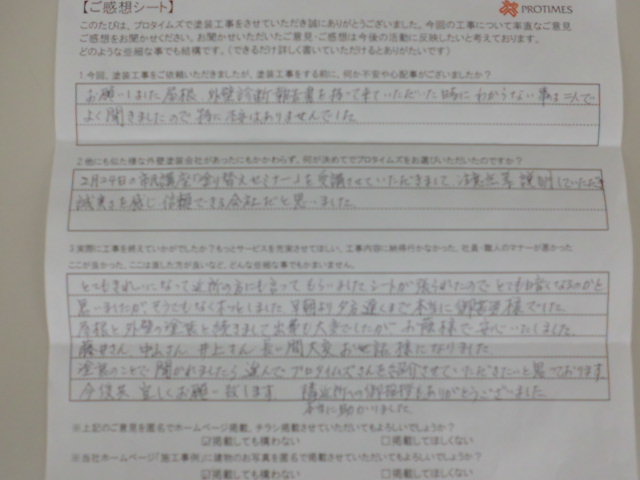 【ご感想シート】
PROTIMES
このたびは、プロタイムズで塗装工事をさせていただき誠にありがとうございました。今回の工事について率直なご意見
ご感想をお聞かせください。お聞かせいただいたご意見・ご感想は今後の活動に反映したいと考えております。
どのような些細な事でも結構です。(できるだけ詳しく書いていただけるとありがたいです)
1 今回、塗装工事をご依頼いただきましたが、塗装工事をする前に、何か不安や心配事がございましたか?
お願いしました屋根、外壁診断報告書を持って来ていただいた時にわからない事は二人で
よく聞きましたので特に不安はありませんでした。
2 他にも似た様な外壁塗装会社があったにもかかわらず、何が決めてでプロタイムズをお選びいただいたのですか?
2月24日の市民講座「塗り替えセミナー」を受講させていただきまして、注意点等説明していただき
誠実さを感じ信頼できる会社だと思いました。
3 実際に工事を終えていかがでしたか?もっとサービスを充実させてほしい、工事内容に納得行かなかった、社員・職人のマナーが悪かった
ここが良かった、ここは直した方が良いなど、どんな些細な事でもかまいません。
とてもきれいになって近所の方にも言ってもらいました シートが張られたのでとても暗くなるのかと
思いましたが、そうでもなくホッとしました 早朝より夕方遅くまで本当に御苦労様でした。
屋根と外壁の塗装と続きまして出費も大変でしたがお蔭様で安心いたしました。
藤井さん 中山さん 井上さん 長い間大変お世話様になりました。
塗装のことで聞かれましたら選んでプロタイムズさんを紹介させていただきたいと思っております。
今後共 宜しくお願い致します 隣近所への御挨拶もありがとうございました
本当に助かりました。
※上記のご意見を匿名でホームページ掲載、チラシ掲載させていただいてもよろしいでしょうか?
☑掲載しても構わない □掲載してほしくない
※当社ホームページ「施工事例」に建物のお写真を匿名で掲載させていただいてもよろしいでしょうか?
☑掲載しても構わない □掲載してほしくない